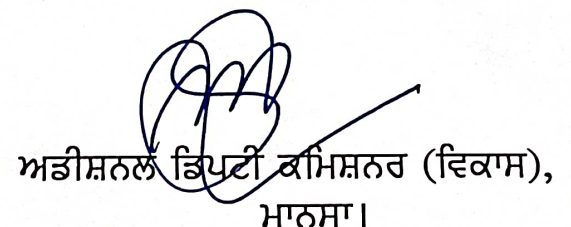 ਅਡੀਸ਼ਨਲ ਡਿਪਟੀ ਕਮਿਸ਼ਨਰ (ਵਿਕਾਸ),
ਮਾਨਸਾ।